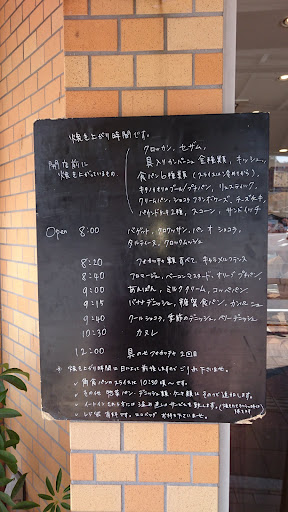 焼き上がり時間です。
開店前に
焼き上がっているもの
クロッカン、セザム、
具入りカンパーニュ全種類、キッシュ、
食パン6種類(スライスは
プチパン、リュスティック、
クリームパン、ショコラフランボワーズ、チーズ
パウンドケーキ2種、スコーン、サンドイッチ
Open 8:00 バゲット、クロワッサン、パン オ ショコラ、
タルティーヌ、クロックムッシュ
8:20 フォカッチャ類すべて、キャラメルフランス
8:40 フロマージュ、ベーコンマスタード、オリーブプチパン、
9:00 あんぱん、ミルククリーム、コッペパン
9:15 バナナデニッシュ、雑穀食パン、カンニュ
9:40 クールショコラ、季節のデニッシュ、ベリーデニッシュ
10:30 カヌレ
12:00 具のせフォカッチャ 2回目
* 焼き上がり時間は日によって前後しますがご了承下さいませ。
✓ 角食パンのスライスは10:30頃〜です。
✓ その他 惣菜パン・デニッシュ類・ケーキ類は
✓ イートイン
✓ レジ袋 有料です。エコバッグ お持ち下さいませ。